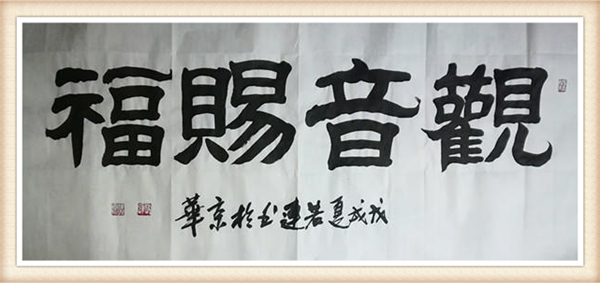 觀音賜福
戊戌夏若連书於京華